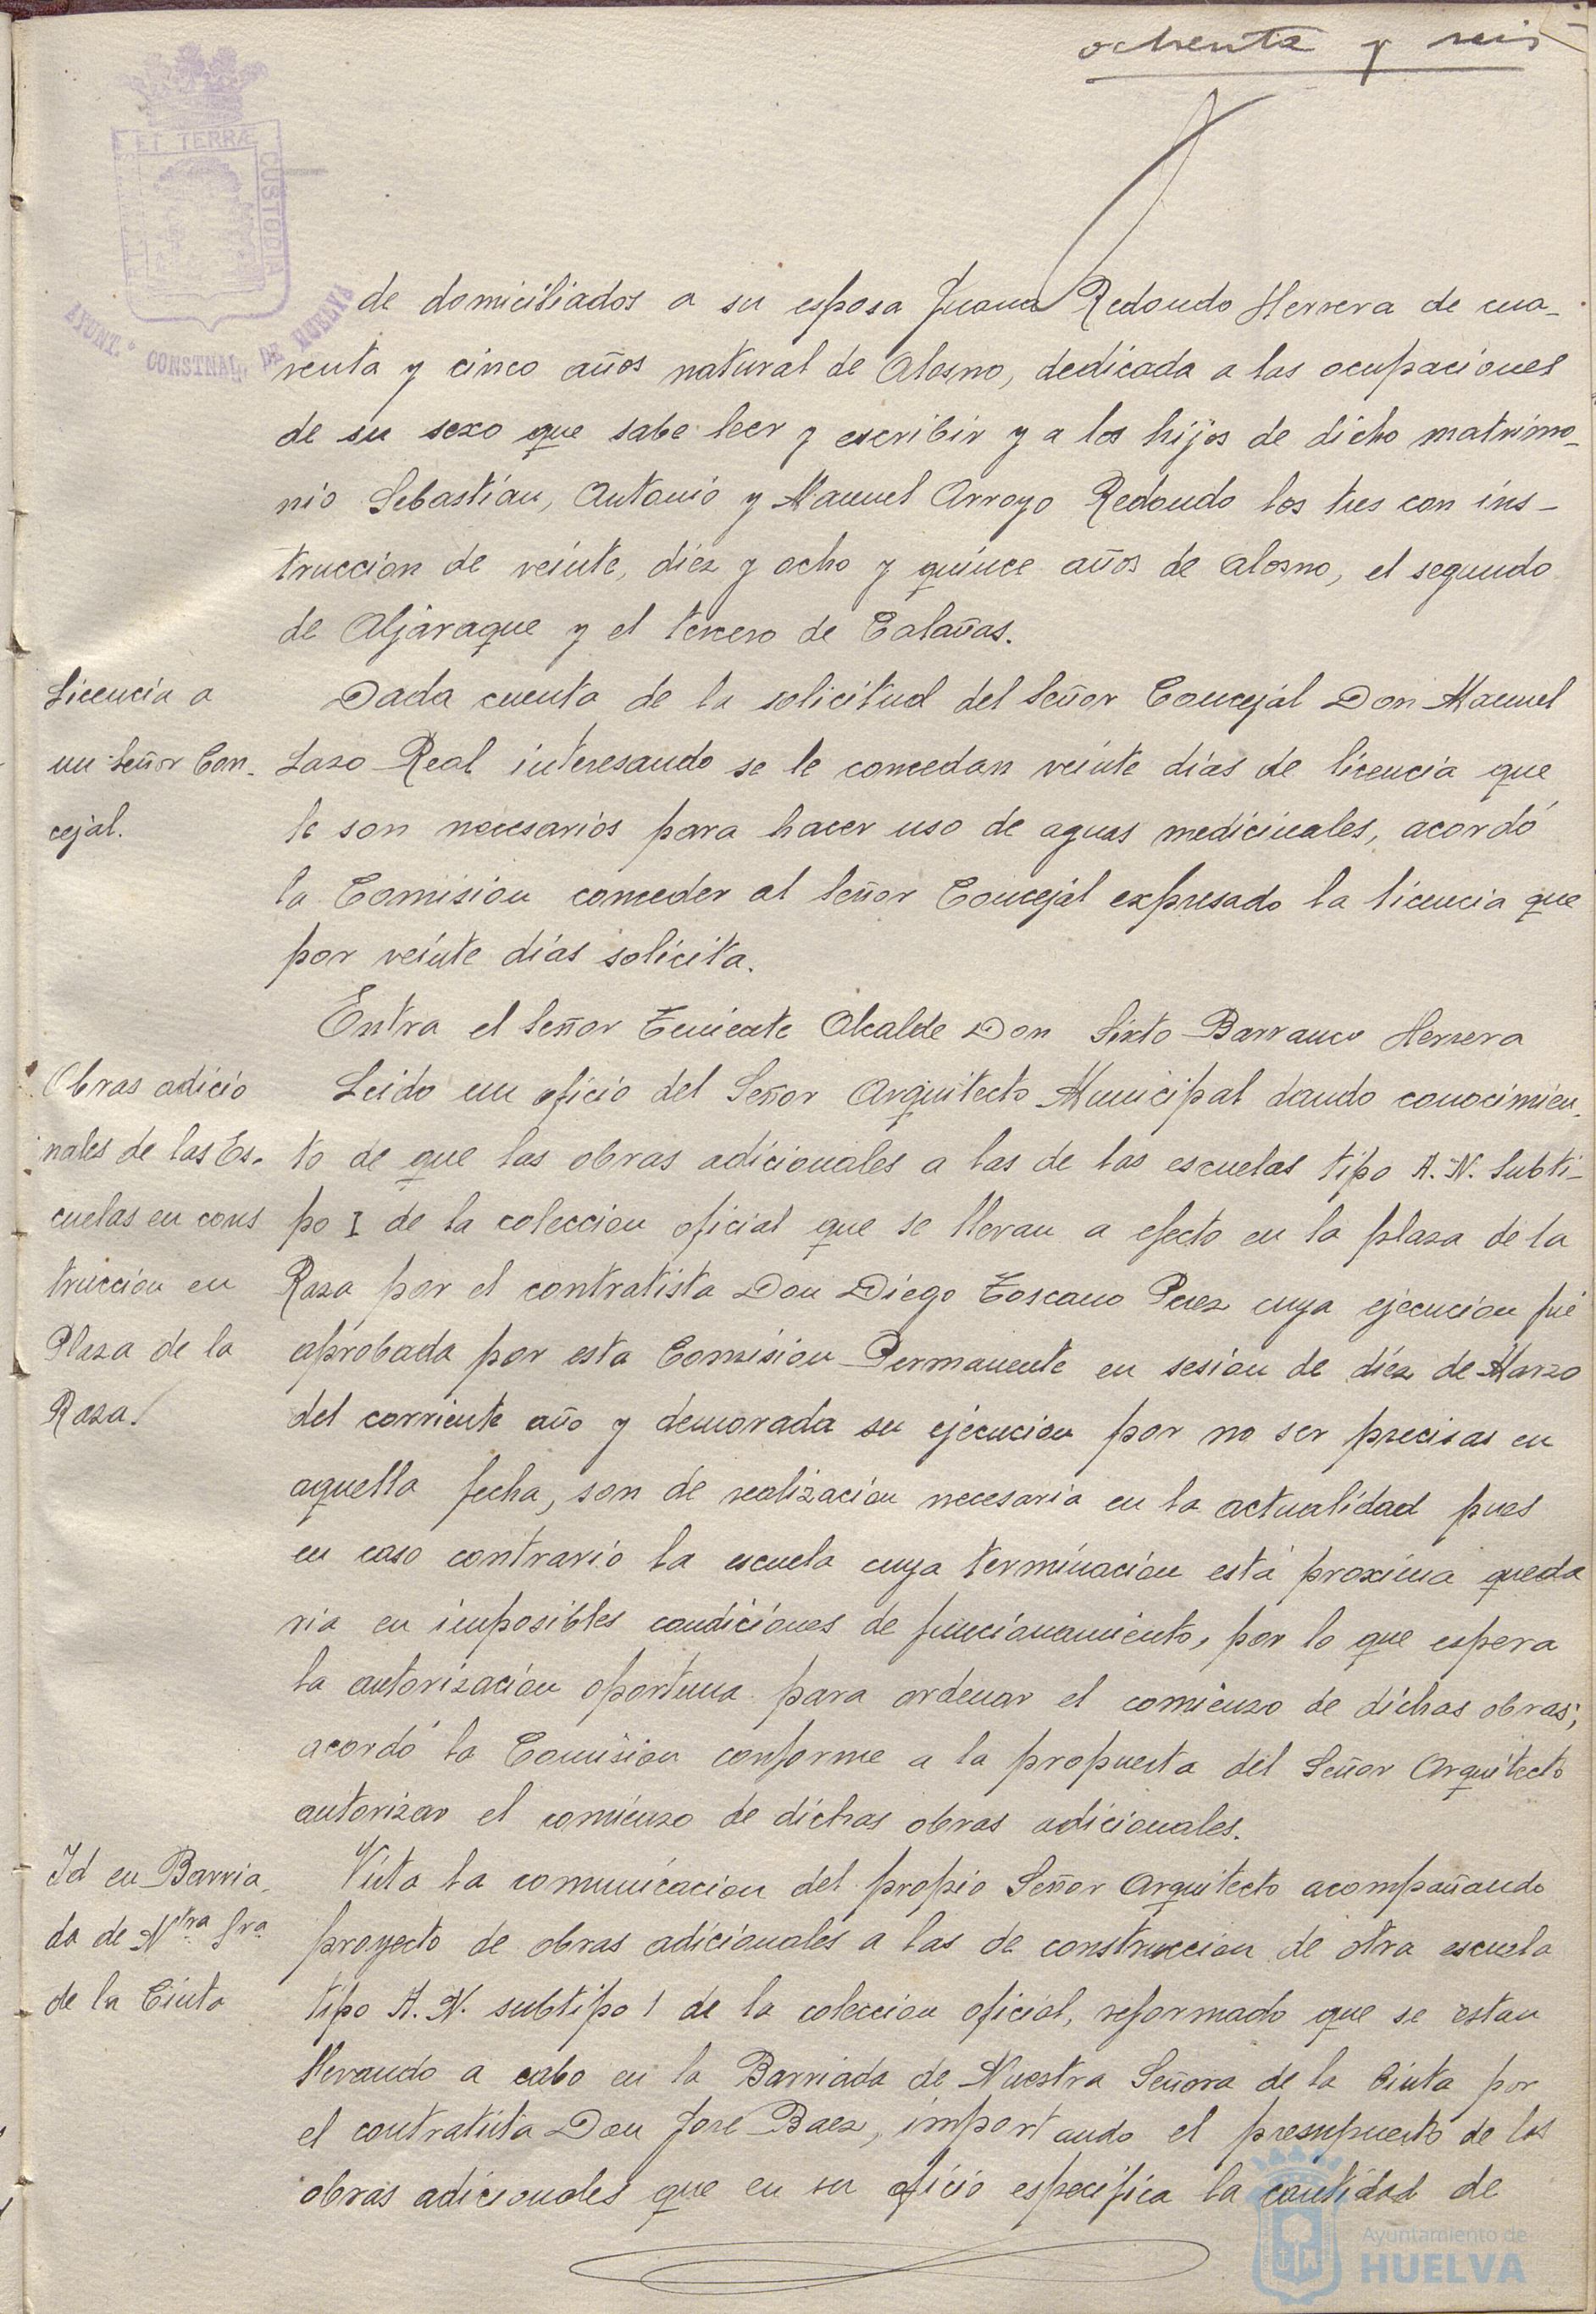 ochenta y seis
ET TERRÆ
CUSTODIA
AYUNT.º CONSTNAL. DE HUELVA
de domiciliados a su esposa Juana Redondo Herrera de cua-
renta y cinco años natural de Alosno, dedicada a las ocupaciones
de su sexo que sabe leer y escribir y a los hijos de dicho matrimo-
nio Sebastián, Antonio y Manuel Arroyo Redondo los tres con ins-
truccion de veinte, diez y ocho y quince años de Alosno, el segundo
de Aljaraque y el tercero de Calañas.
Licencia a
un Señor Con-
cejal.
Dada cuenta de la solicitud del Señor Concejal Don Manuel
Lazo Real interesando se le concedan veinte días de licencia que
le son necesarios para hacer uso de aguas medicinales, acordó
la Comision conceder al Señor Concejal expresado la licencia que
por veinte días solicita.
Entra el Señor Teniente Alcalde Don Sixto Barranco Herrera
Obras adicio
nales de las Es-
cuelas en cons
trucción en
Plaza de la
Raza.
Leido un oficio del Señor Arquitecto Municipal dando conocimien-
to de que las obras adicionales a las de las escuelas tipo A.N. Subti-
po I de la coleccion oficial que se llevan a efecto en la plaza de la
Raza por el contratista Don Diego Toscano Perez cuya ejecucion fué
aprobada por esta Comision Permanente en sesion de diez de Marzo
del corriente año y demorada su ejecucion por no ser precisas en
aquella fecha, son de realización necesaria en la actualidad pues
en caso contrario la escuela cuya terminación está proxima queda
ria en imposibles condiciones de funcionamiento, por lo que espera
la autorización oportuna para ordenar el comienzo de dichas obras;
acordó la Comision conforme a la propuesta del Señor Arquitecto
autorizar el comienzo de dichas obras adicionales.
Id en Barria-
da de Ntra Sra
de la Cinta
Vista la comunicacion del propio Señor Arquitecto acompañando
proyecto de obras adicionales a las de construccion de otra escuela
tipo A.N. subtipo 1 de la coleccion oficial, reformado que se estan
llevando a cabo en la Barriada de Nuestra Señora de la Cinta por
el contratista Don José Baez, importando el presupuesto de las
obras adicionales que en su oficio especifica la cantidad de
Ayuntamiento de
HUELVA